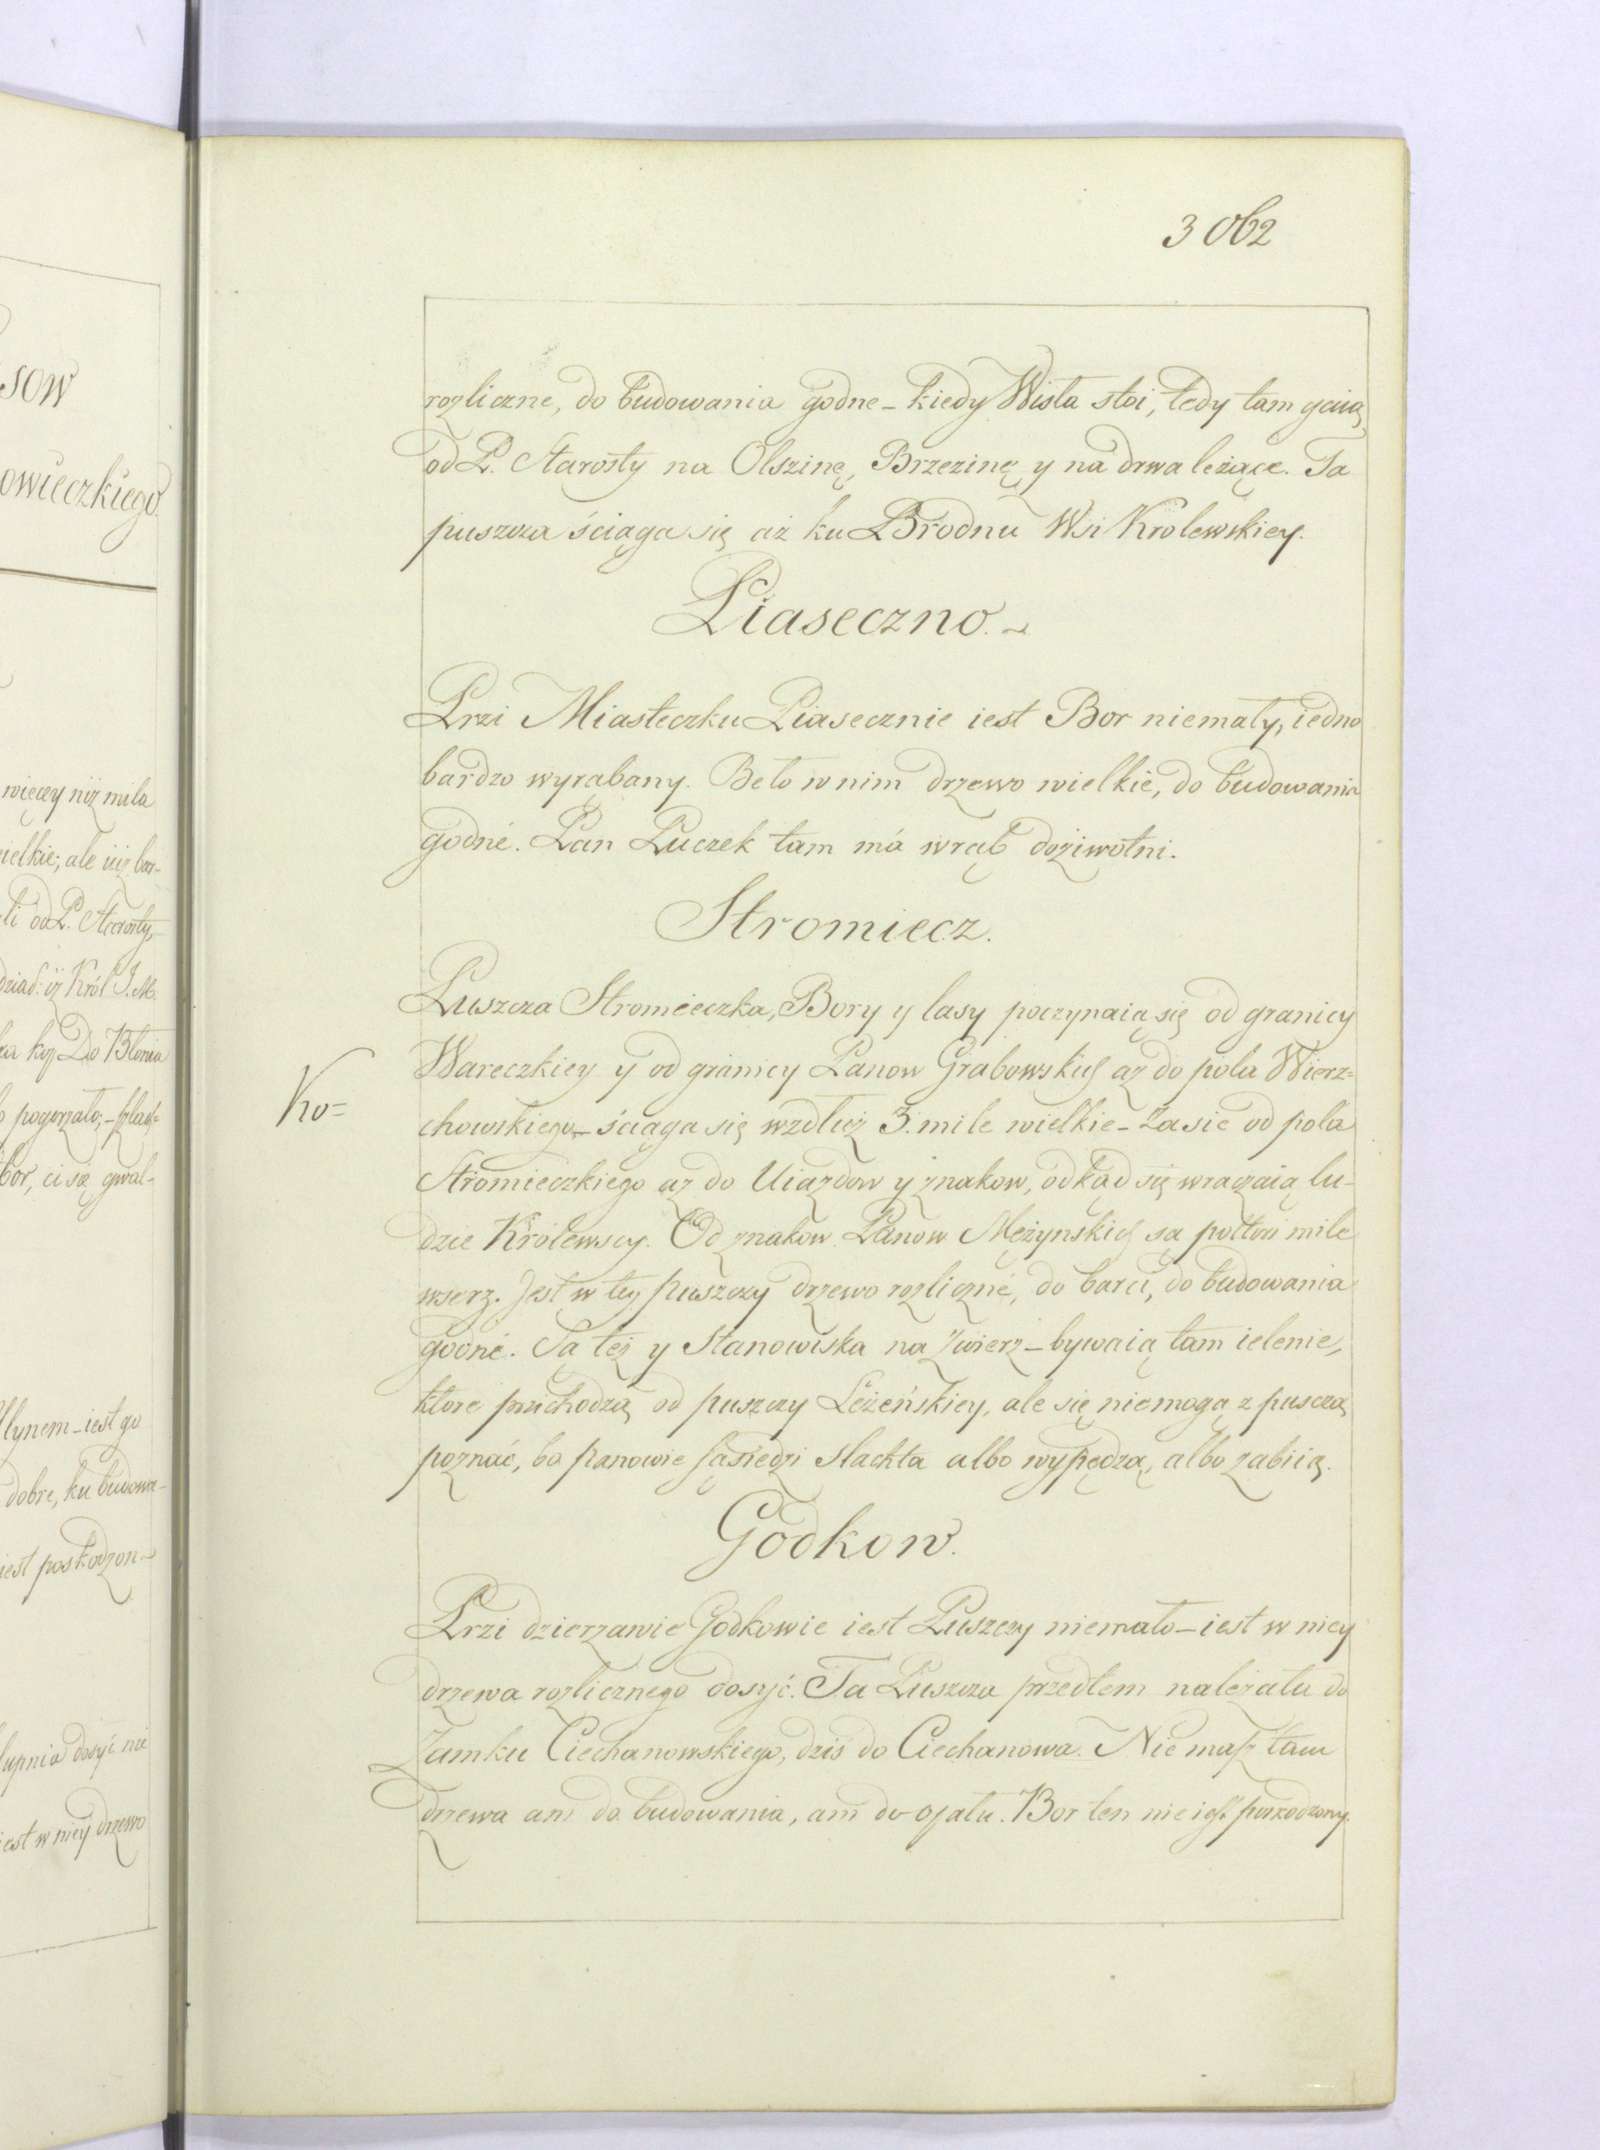 sow
owieczkiego
więcey niż mila
ielkie; ale iuż bar-
li od P. Starosty,
dziad: iż Król J. M.
ka kop Do Błonia
o pogorzało; - szlach=
bor, ci są gwał-
łynem - iest go
dobre, ku budowa-
iest poskodzon-
łupnia dosyć nie
iest w niey drzewo
3 062
rozliczne, do budowania godne - kiedy Wisła stoi, tedy tam
od P. Starosty na Olszinę, Brzezinę y na drwa leżące. Ta
puszcza ściąga się aż ku Brodnu Wsi Krolewskiey.
Piaseczno.
Przi Miasteczku Piasecznie iest Bor niemały, iedno
bardzo wyrąbany. Beło w nim drzewo wielkie, do budowania
godné. Pan Puczek tam má wrąb dożiwotni.
Stromiecz.
Puszcza Stromieczka, Bory y lasy poczynaią się od granicy
Wareczkiey y od granicy Panow Grabowskich aż do pola Wierz=
Ko=
chowskiego - ściąga się wzdłuż 3. mile wielkie - Zasie od pola
Stromieczkiego aż do Uiazdow y znakow, odkąd się wrązaią lu-
dzie Królewscy. Od znakow Panow Meżynskich są połtori mile
wserz. Jest w tey puszczy drzewo rozliczné, do barci, do budowania
godné. Są też y Stanowiska na Zwierz - bywaią tam ielenie,
ktore przichodzą od puszczy Leżeńskiey, ale się niemogą z puszczą
poznać, bo panowie sąsiedzi slachta albo wypędzą, albo zabiią.
Godkow.
Przi dzierzawie Godkowie iest Puszczy niemało - iest w niey
drzewa rozlicznego dosyć. Ta Puszcza przedtem należała do
Zamku Ciechanowskiego, dzis do Ciechanowa. Nie masz tam
drzewa ani do budowania, ani do opału. Bor ten nie iest poskodzony.